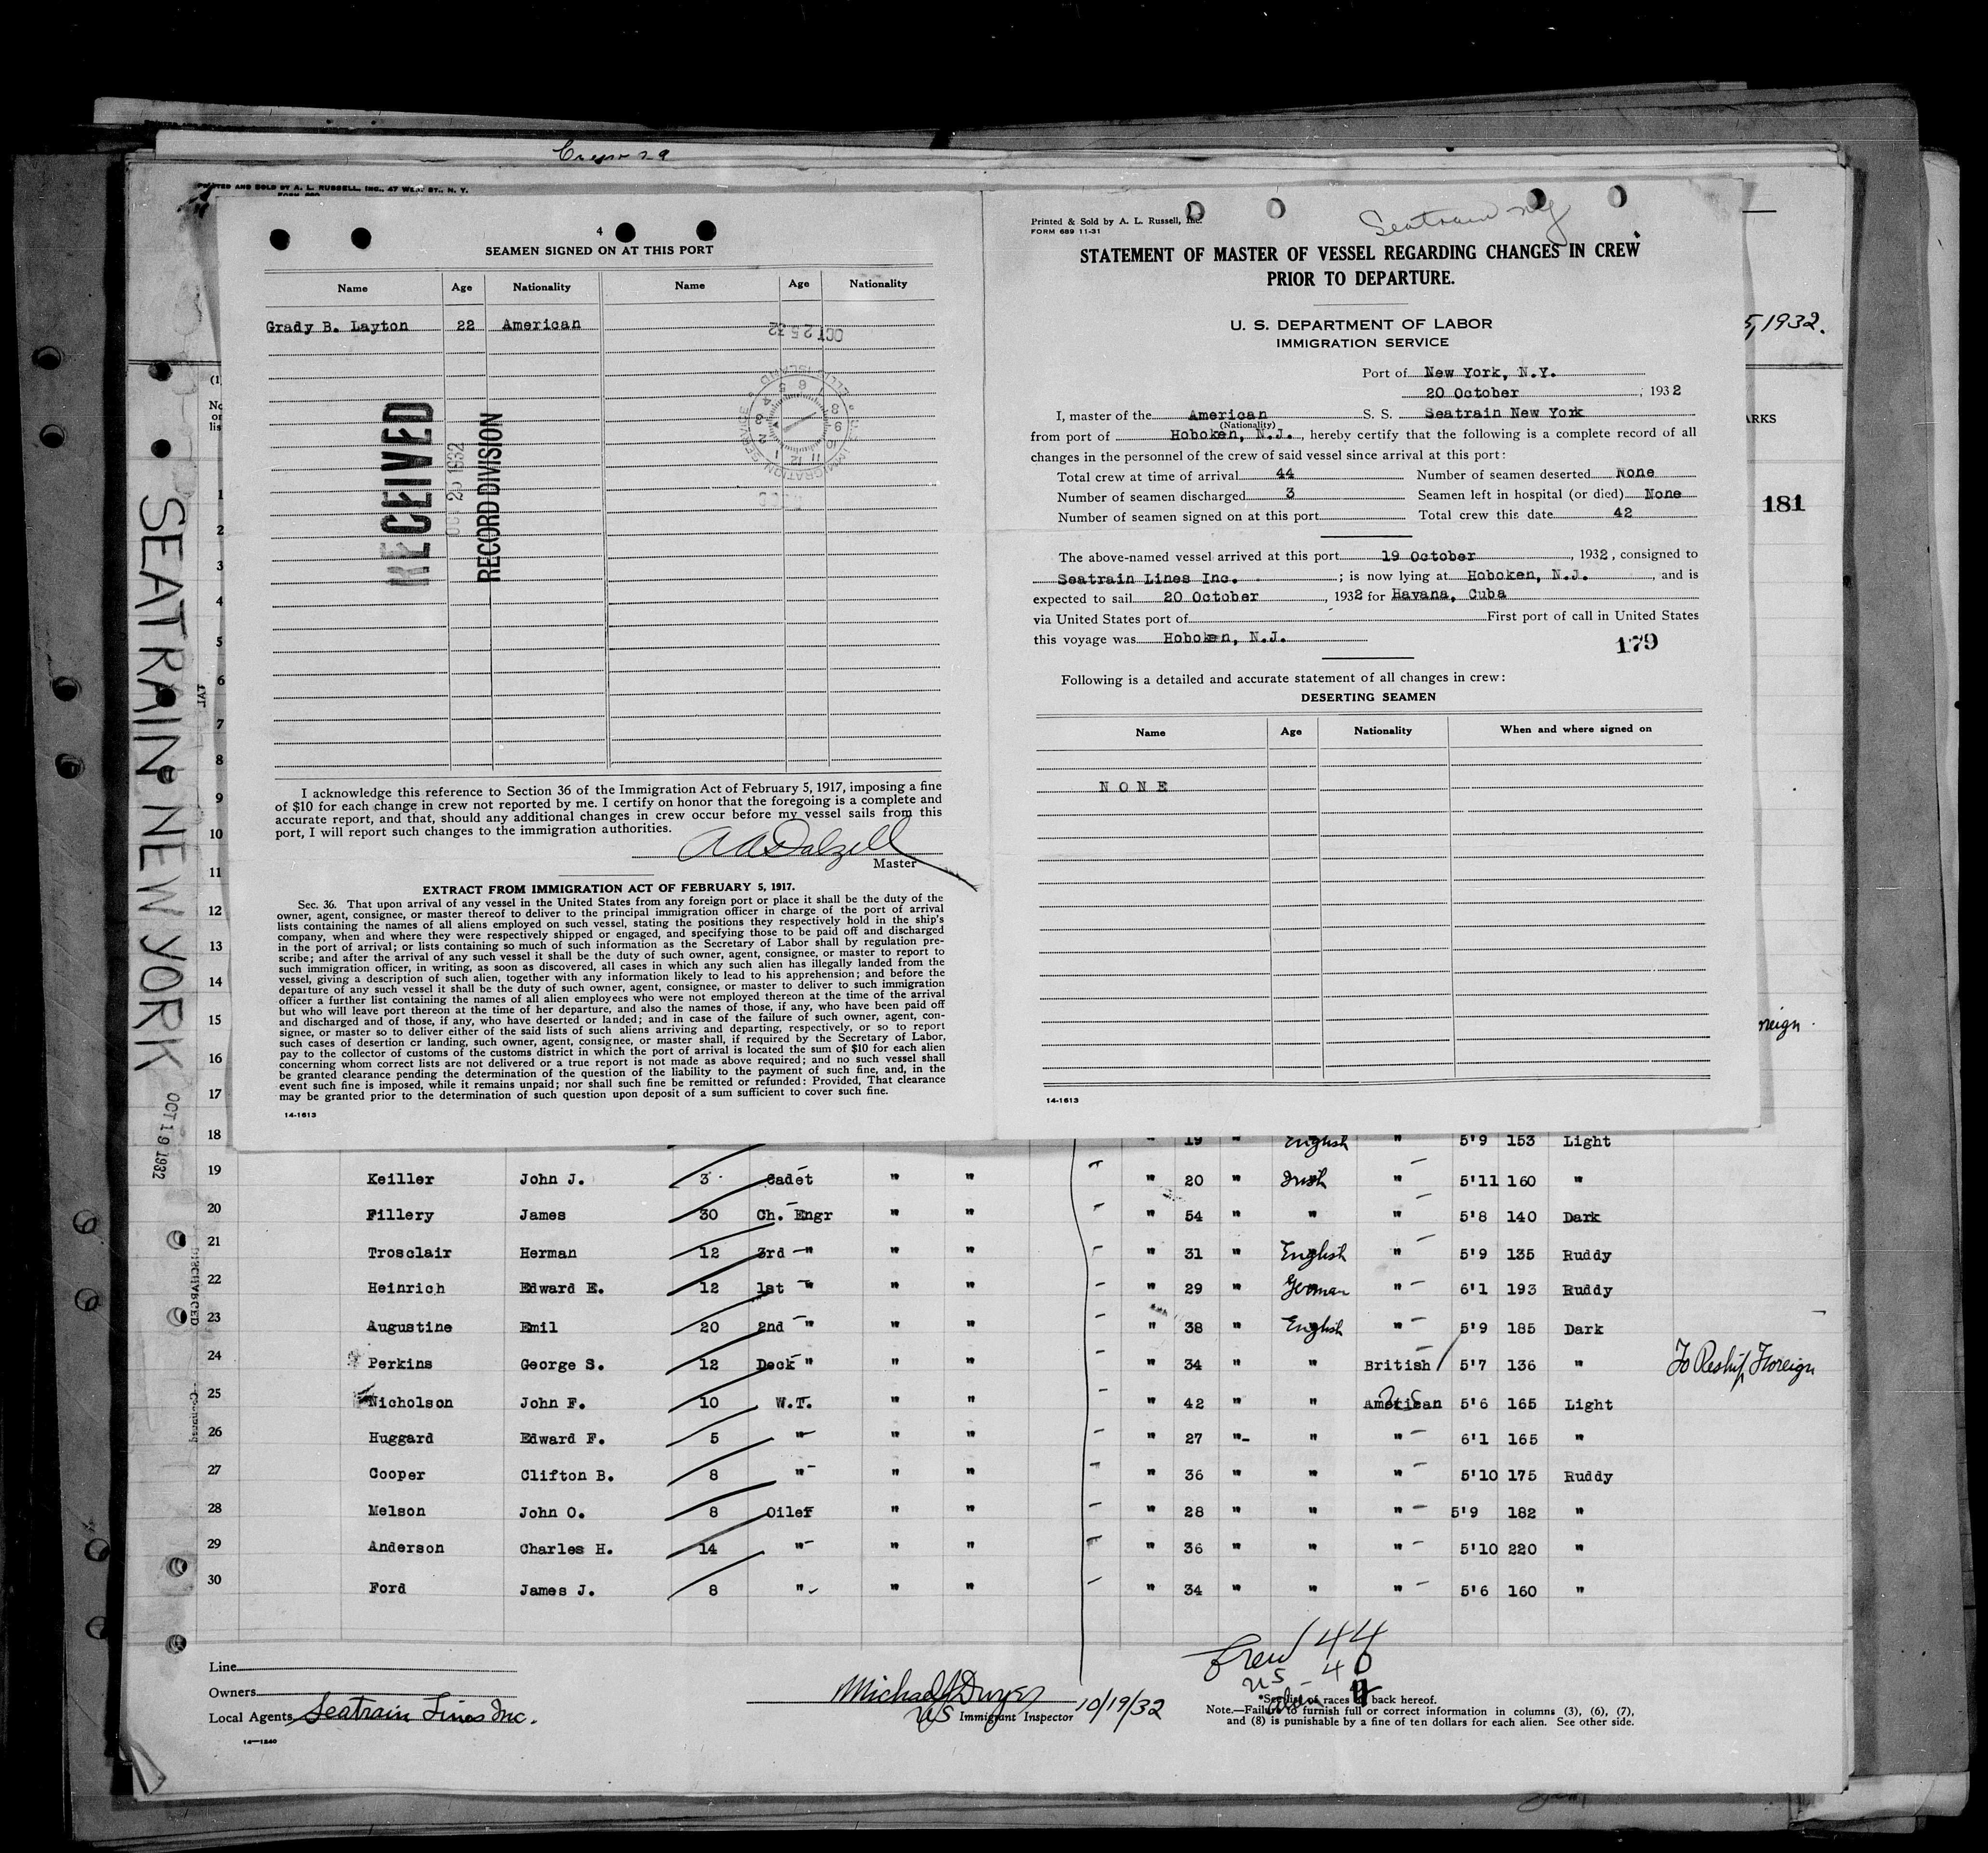 PRINTED AND SOLD BY A. L. RUSSELL, INC., 47 WEST ST., N. Y.
4
SEAMEN SIGNED ON AT THIS PORT
Name Age Nationality Name Age Nationality
Grady B. Layton 22 American
OCT 25 32
RECEIVED
OCT 25 1932
RECORD DIVISION
I acknowledge this reference to Section 36 of the Immigration Act of February 5, 1917, imposing a fine
of $10 for each change in crew not reported by me. I certify on honor that the foregoing is a complete and
accurate report, and that, should any additional changes in crew occur before my vessel sails from this
port, I will report such changes to the immigration authorities.
AADalzell
Master
EXTRACT FROM IMMIGRATION ACT OF FEBRUARY 5, 1917.
Sec. 36. That upon arrival of any vessel in the United States from any foreign port or place it shall be the duty of the
owner, agent, consignee, or master thereof to deliver to the principal immigration officer in charge of the port of arrival
lists containing the names of all aliens employed on such vessel, stating the positions they respectively hold in the ship's
company, when and where they were respectively shipped or engaged, and specifying those to be paid off and discharged
in the port of arrival; or lists containing so much of such information as the Secretary of Labor shall by regulation pre-
scribe; and after the arrival of any such vessel it shall be the duty of such owner, agent, consignee, or master to report to
such immigration officer, in writing, as soon as discovered, all cases in which any such alien has illegally landed from the
vessel, giving a description of such alien, together with any information likely to lead to his apprehension; and before the
departure of any such vessel it shall be the duty of such owner, agent, consignee, or master to deliver to such immigration
officer a further list containing the names of all alien employees who were not employed thereon at the time of the arrival
but who will leave port thereon at the time of her departure, and also the names of those, if any, who have been paid off
and discharged and of those, if any, who have deserted or landed; and in case of the failure of such owner, agent, con-
signee, or master so to deliver either of the said lists of such aliens arriving and departing, respectively, or so to report
such cases of desertion or landing, such owner, agent, consignee, or master shall, if required by the Secretary of Labor,
pay to the collector of customs of the customs district in which the port of arrival is located the sum of $10 for each alien
concerning whom correct lists are not delivered or a true report is not made as above required; and no such vessel shall
be granted clearance pending the determination of the question of the liability to the payment of such fine, and, in the
event such fine is imposed, while it remains unpaid; nor shall such fine be remitted or refunded: Provided, That clearance
may be granted prior to the determination of such question upon deposit of a sum sufficient to cover such fine.
14-1613
Seatrain NY
Printed & Sold by A. L. Russell, Inc.
FORM 689 11-31
STATEMENT OF MASTER OF VESSEL REGARDING CHANGES IN CREW
PRIOR TO DEPARTURE.
U. S. DEPARTMENT OF LABOR
IMMIGRATION SERVICE
Port of New York, N.Y.
20 October, 1932
I, master of the American S. S. Seatrain New York
(Nationality)
from port of Hoboken, N.J., hereby certify that the following is a complete record of all
changes in the personnel of the crew of said vessel since arrival at this port:
Total crew at time of arrival 44 Number of seamen deserted None
Number of seamen discharged 3 Seamen left in hospital (or died) None
Number of seamen signed on at this port Total crew this date 42
The above-named vessel arrived at this port 19 October, 1932, consigned to
Seatrain Lines Inc. ; is now lying at Hoboken, N.J., and is
expected to sail 20 October, 1932 for Havana, Cuba
via United States port of First port of call in United States
this voyage was Hoboken, N.J.
179
Following is a detailed and accurate statement of all changes in crew:
DESERTING SEAMEN
Name Age Nationality When and where signed on
NONE
14-1613
5, 1932.
ARKS
181
reign
SEATRAIN NEW YORK
OCT 19 1932
1
2
3
4
5
6
7
8
9
10
11
12
13
14
15
16
17
18 " 19 " English " 5'9 153 Light
19 Keiller John J. 3 Cadet " " " 20 " Irish " 5'11 160 "
20 Fillery James 30 Ch. Engr " " " 54 " " " 5'8 140 Dark
21 Trosclair Herman 12 3rd " " " " 31 " English " 5'9 135 Ruddy
22 Heinrich Edward E. 12 1st " " " " 29 " German " 6'1 193 Ruddy
23 Augustine Emil 20 2nd " " " " 38 " English " 5'9 185 Dark
24 Perkins George S. 12 Deck " " " " 34 " " British 5'7 136 " To Reship Foreign
25 Nicholson John F. 10 W.T. " " " 42 " " American 5'6 165 Light
26 Huggard Edward F. 5 " " " " 27 " " " 6'1 165 "
27 Cooper Clifton B. 8 " " " " 36 " " " 5'10 175 Ruddy
28 Melson John O. 8 Oiler " " " 28 " " " 5'9 182 "
29 Anderson Charles H. 14 " " " " 36 " " " 5'10 220 "
30 Ford James J. 8 " " " " 34 " " " 5'6 160 "
Line
Owners
Local Agents Seatrain Lines Inc.
14-1240
Michael J Dwyer
US Immigrant Inspector 10/19/32
Crew 44
US 40
alien 4
*See list of races on back hereof.
Note.—Failure to furnish full or correct information in columns (3), (6), (7),
and (8) is punishable by a fine of ten dollars for each alien. See other side.